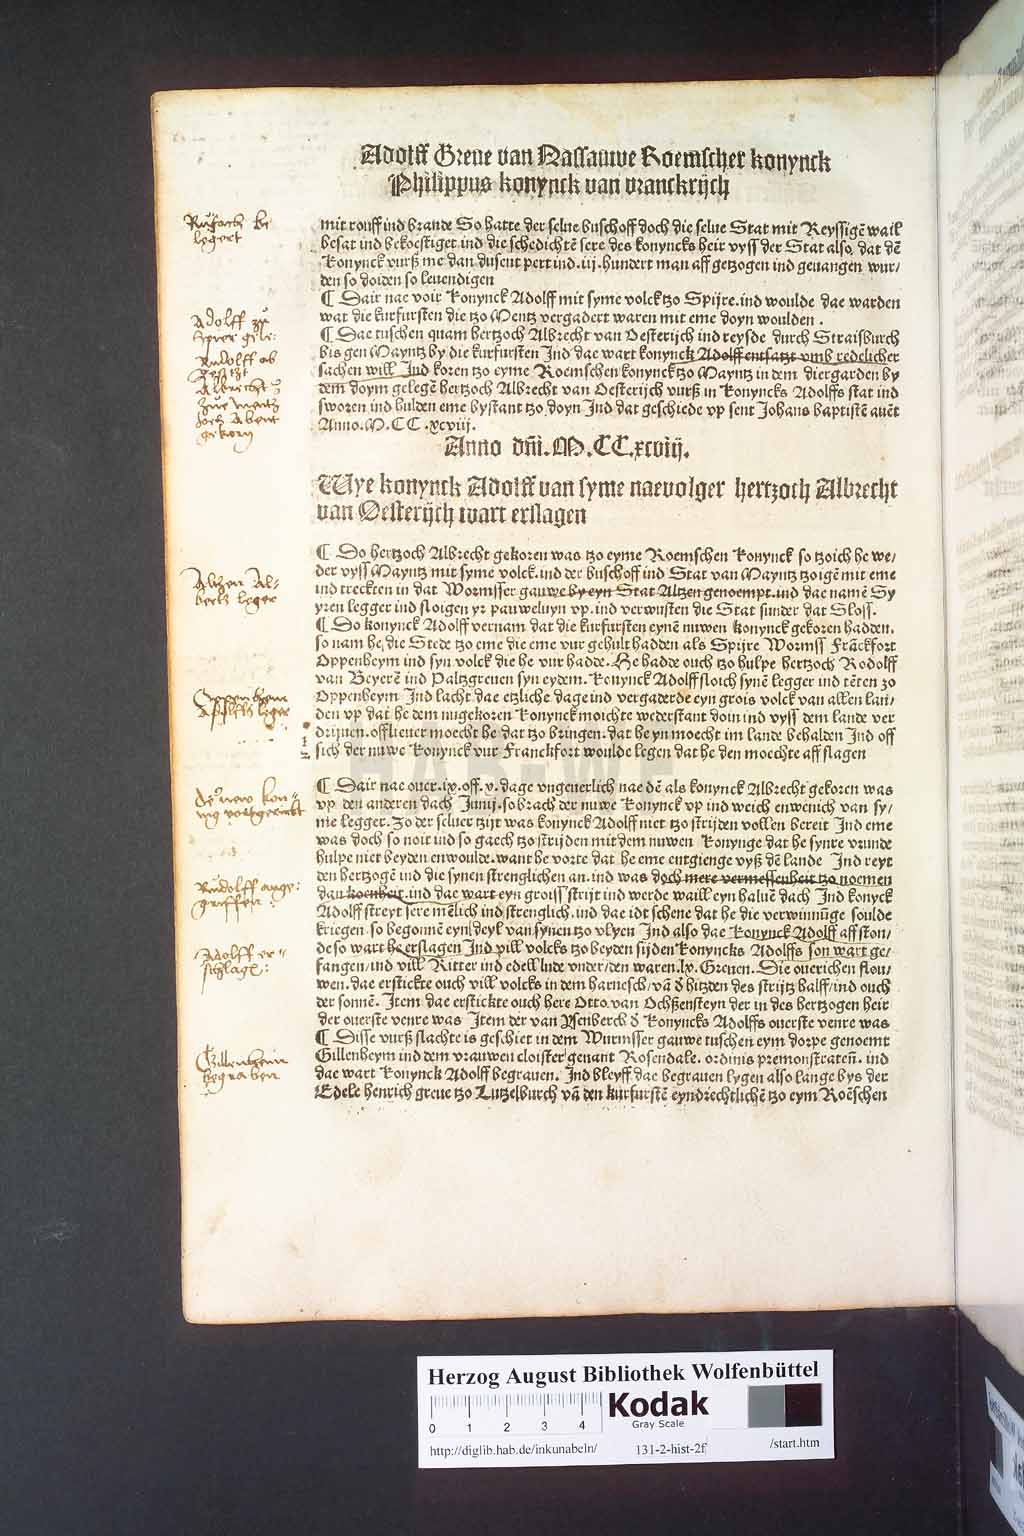 Adolff Greue van Nassauwe Roemscher konynck
Philippus konynck van vranckrijch
mit rouff ind brande So hatte der selue buschoff doch die selue Stat mit Reyssigē wail
besat ind bekoestiget ind die schedichtē sere des konyncks heir vyss der Stat also, dat dē
Konynck vurß me dan dusent pert ind .iij. hundert man aff getzogen ind geuangen wur/
den so doiden so leuendigen
¶ Dair nae voir Konynck Adolff mit syme volck tzo Spijre. ind woulde dae warden
wat die kurfursten die tzo Mentz vergadert waren mit eme doyn woulden .
¶ Dae tuschen quam hertzoch Albrecht van Oesterijch ind reysde durch Straisburch
bis gen Mayntz by die kurfursten Ind dae wart konynck Adolff entsatzt vmb redelicher
sachen will Ind koren tzo eyme Roemschen konynck tzo Mayntz in dem diergarden by
dem doym gelegē hertzoch Albrecht van Oesterijch vurß in Konyncks Adolffs stat ind
sworen ind hulden eme bystant tzo doyn Ind dat geschiede vp sent Johans baptistē auēt
Anno. M. CC .xcviij.
Anno dm̄. M. CC. xcviij.
Wye konynck Adolff van syme naevolger hertzoch Albrecht
van Oesterijch wart erslagen
¶ Do hertzoch Albrecht gekoren was tzo eyme Roemschen Konynck so tzoich he we/
der vyss Mayntz mit syme volck. ind der buschoff ind Stat van Mayntz tzoigē mit eme
ind treckten in dat Wormsser gauwe by eyn Stat Altzen genoempt. ind dae namē Sy
yren legger ind sloigen yr pauweluyn vp. ind verwusten die Stat sunder dat Sloss.
¶ Do konynck Adolff vernam dat die kurfursten eynē nuwen konynck gekoren hadden.
so nam he die Stede tzo eme die eme vur gehult hadden als Spijre Wormss Frāckfort
Oppenheym ind syn volck die he vur hadde. He hadde ouch tzo hulpe hertzoch Rodolff
van Beyerē ind Paltzgreuen syn eydem. Konynck Adolff sloich synē legger ind tēten zo
Oppenheym Ind lacht dae etzliche dage ind vergaderde eyn grois volck van allen lan/
den vp dat he dem nugekoren Konynck moichte wederstant doin ind vyss dem lande ver
drijuen. off lieuer moecht he dat tzo bringen. dat he yn moecht im lande behalden Ind off
sich der nuwe Konynck vur Franckfort woulde legen dat he den moechte aff slagen
¶ Dair nae ouer .ix. off. x. dage vngenerlich nae dē als konynck Albrecht gekoren was
vp den anderen dach Junij. so brach der nuwe Konynck vp ind weich enwenich van sy/
me legger. Zo der seluer tzijt was konynck Adolff niet tzo strijden vollen bereit Ind eme
was doch so noit ind so gaech tzo strijden mit dem nuwen Konynge dat he synre vrunde
hulpe niet beyden enwoulde. want he vorte dat he eme entgienge vyß dē lande Ind reyt
den hertzogē ind die synen strenglichen an. ind was doch mere vermessenheit tzo noemen
dan koenheit. ind dae wart eyn groiss strijt ind werde waill eyn haluē dach Ind konyck
Adolff streyt sere mēlich ind strenglich. ind dae idt schene dat he die verwinnūge soulde
kriegen. so begonnē eyn deyl van synen tzo vlyen Ind also dae Konynck Adolff aff ston/
de so wart he erslagen Ind vill volcks tzo beyden sijden Konyncks Adolffs son wart ge/
fangen/ind vill Ritter ind edell lude vnder/den waren. lx. Greuen. Die ouerichen flou/
wen. dae erstickte ouch vill volcks in dem harnesch/ vā d hitzden des strijtz halff/ ind ouch
der sonnē. Item dae erstickte ouch here Otto van Ochßensteyn der in des hertzogen heir
der ouerste venre was Item der van Ysenberch d Konyncks Adolffs ouerste venre was
¶ Disse vurß slachte is geschiet in dem Wurmsser gauwe tuschen eym dorpe genoemt
Gillenheym ind dem vrauwen cloister genant Rosendale. ordinis premonstrateñ. ind
dae wart Konynck Adolff begrauen. Ind bleyff dae begrauen lygen also lange bys der
Edele henrich greue tzo Lutzelburch vā den kurfurstē eyndrechtlichē tzo eym Roēschen
Rufach be
legert
Adolff zu
Albrecht
Altzen Al-
bertz leger
Oppenheim
Adolffs leger
Rudolff ange:
griffen:
Adolff er-
schlagē:
Gillenheim
begraben
Herzog August Bibliothek Wolfenbüttel
0 1 2 3 4
Kodak
Gray Scale
http://diglib.hab.de/inkunabeln/ 131-2-hist-2f /start.htm